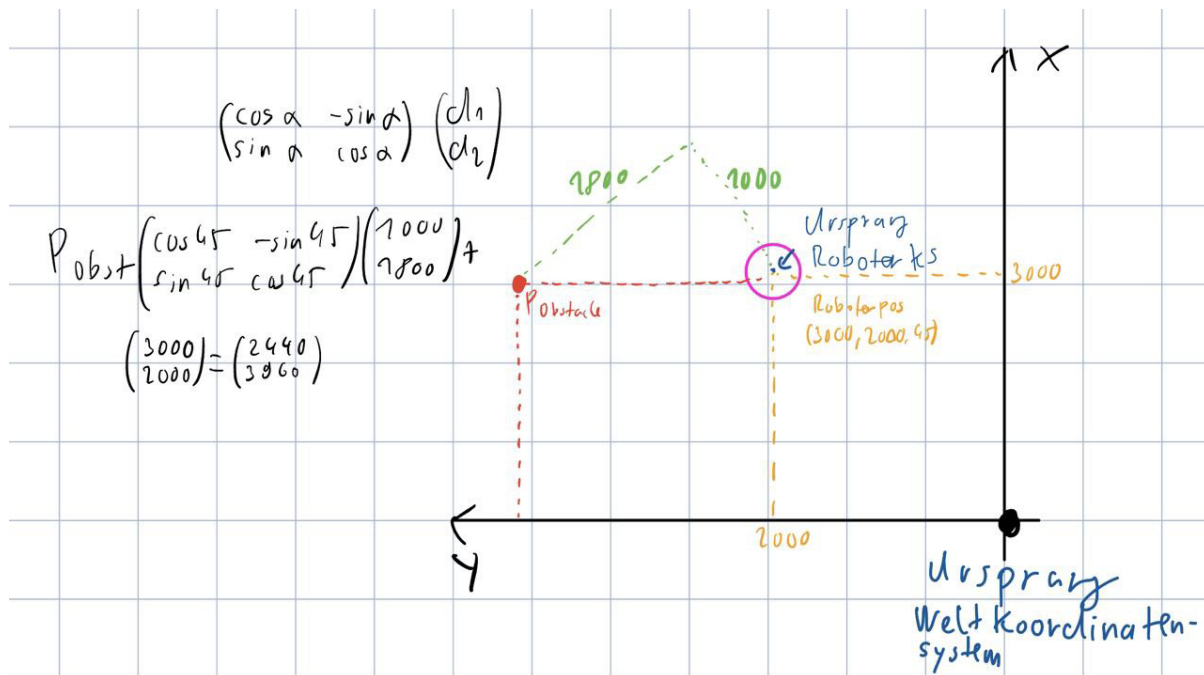 (cos α -sin α) (d1
sin α cos α) d2)
P obst (cos 45 -sin 45) (1000
sin 45 cos 45) 1800) +
(3000
2000) = (2440
3960)
1800
1000
Ursprung
Roboter ks
3000
P obstacle
Roboterpos
(3000, 2000, 45)
X
Y
2000
Ursprung
Weltkoordinaten-
system